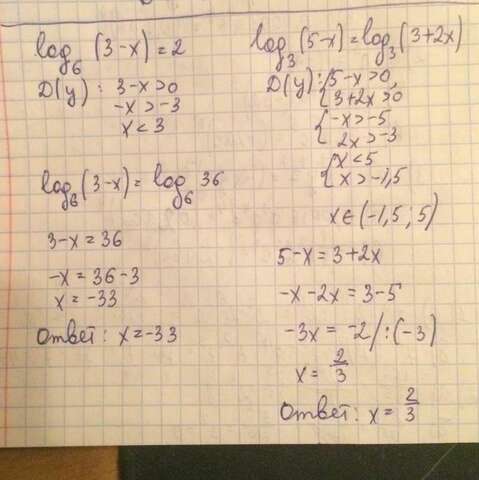 log₆ (3-x) = 2
D(y) : 3-x>0
-x>-3
x<3
log₆(3-x) = log₆ 36
3-x = 36
-x = 36-3
x = -33
Ответ: x = -33
log₃(5-x) = log₃(3+2x)
D(y) : {5-x>0,
{3+2x>0
{-x>-5
2x>-3
{x<5
x>-1,5
x∈(-1,5; 5)
5-x = 3+2x
-x-2x = 3-5
-3x = -2/:(-3)
x = 2/3
Ответ: x = 2/3